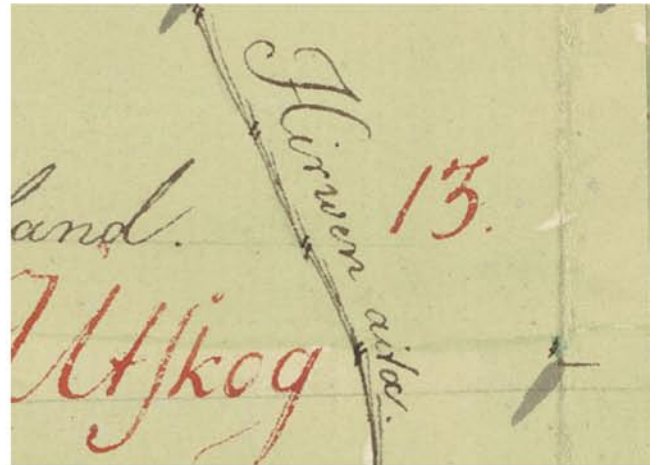 Hirwen aita.
13.
land.
Utskog